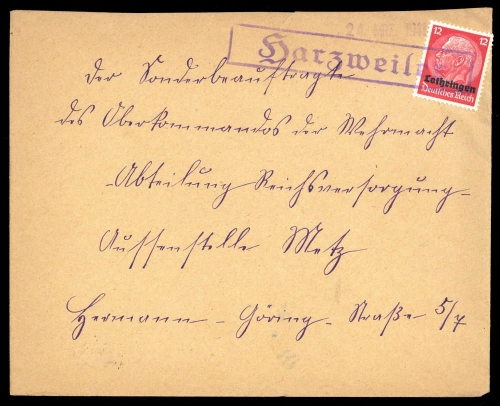 12 12
Lothringen
Deutsches Reich
Harzweiler
Der Sonderbeauftragte
des Oberkommandos der Wehrmacht
-Abteilung Reichsversorgung-
Aussenstelle Metz
Hermann - Göring - Straße 5/7